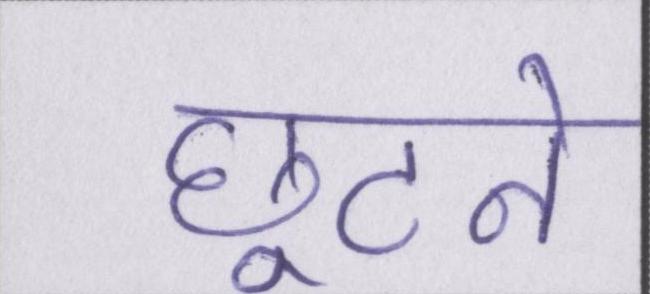 छूटने